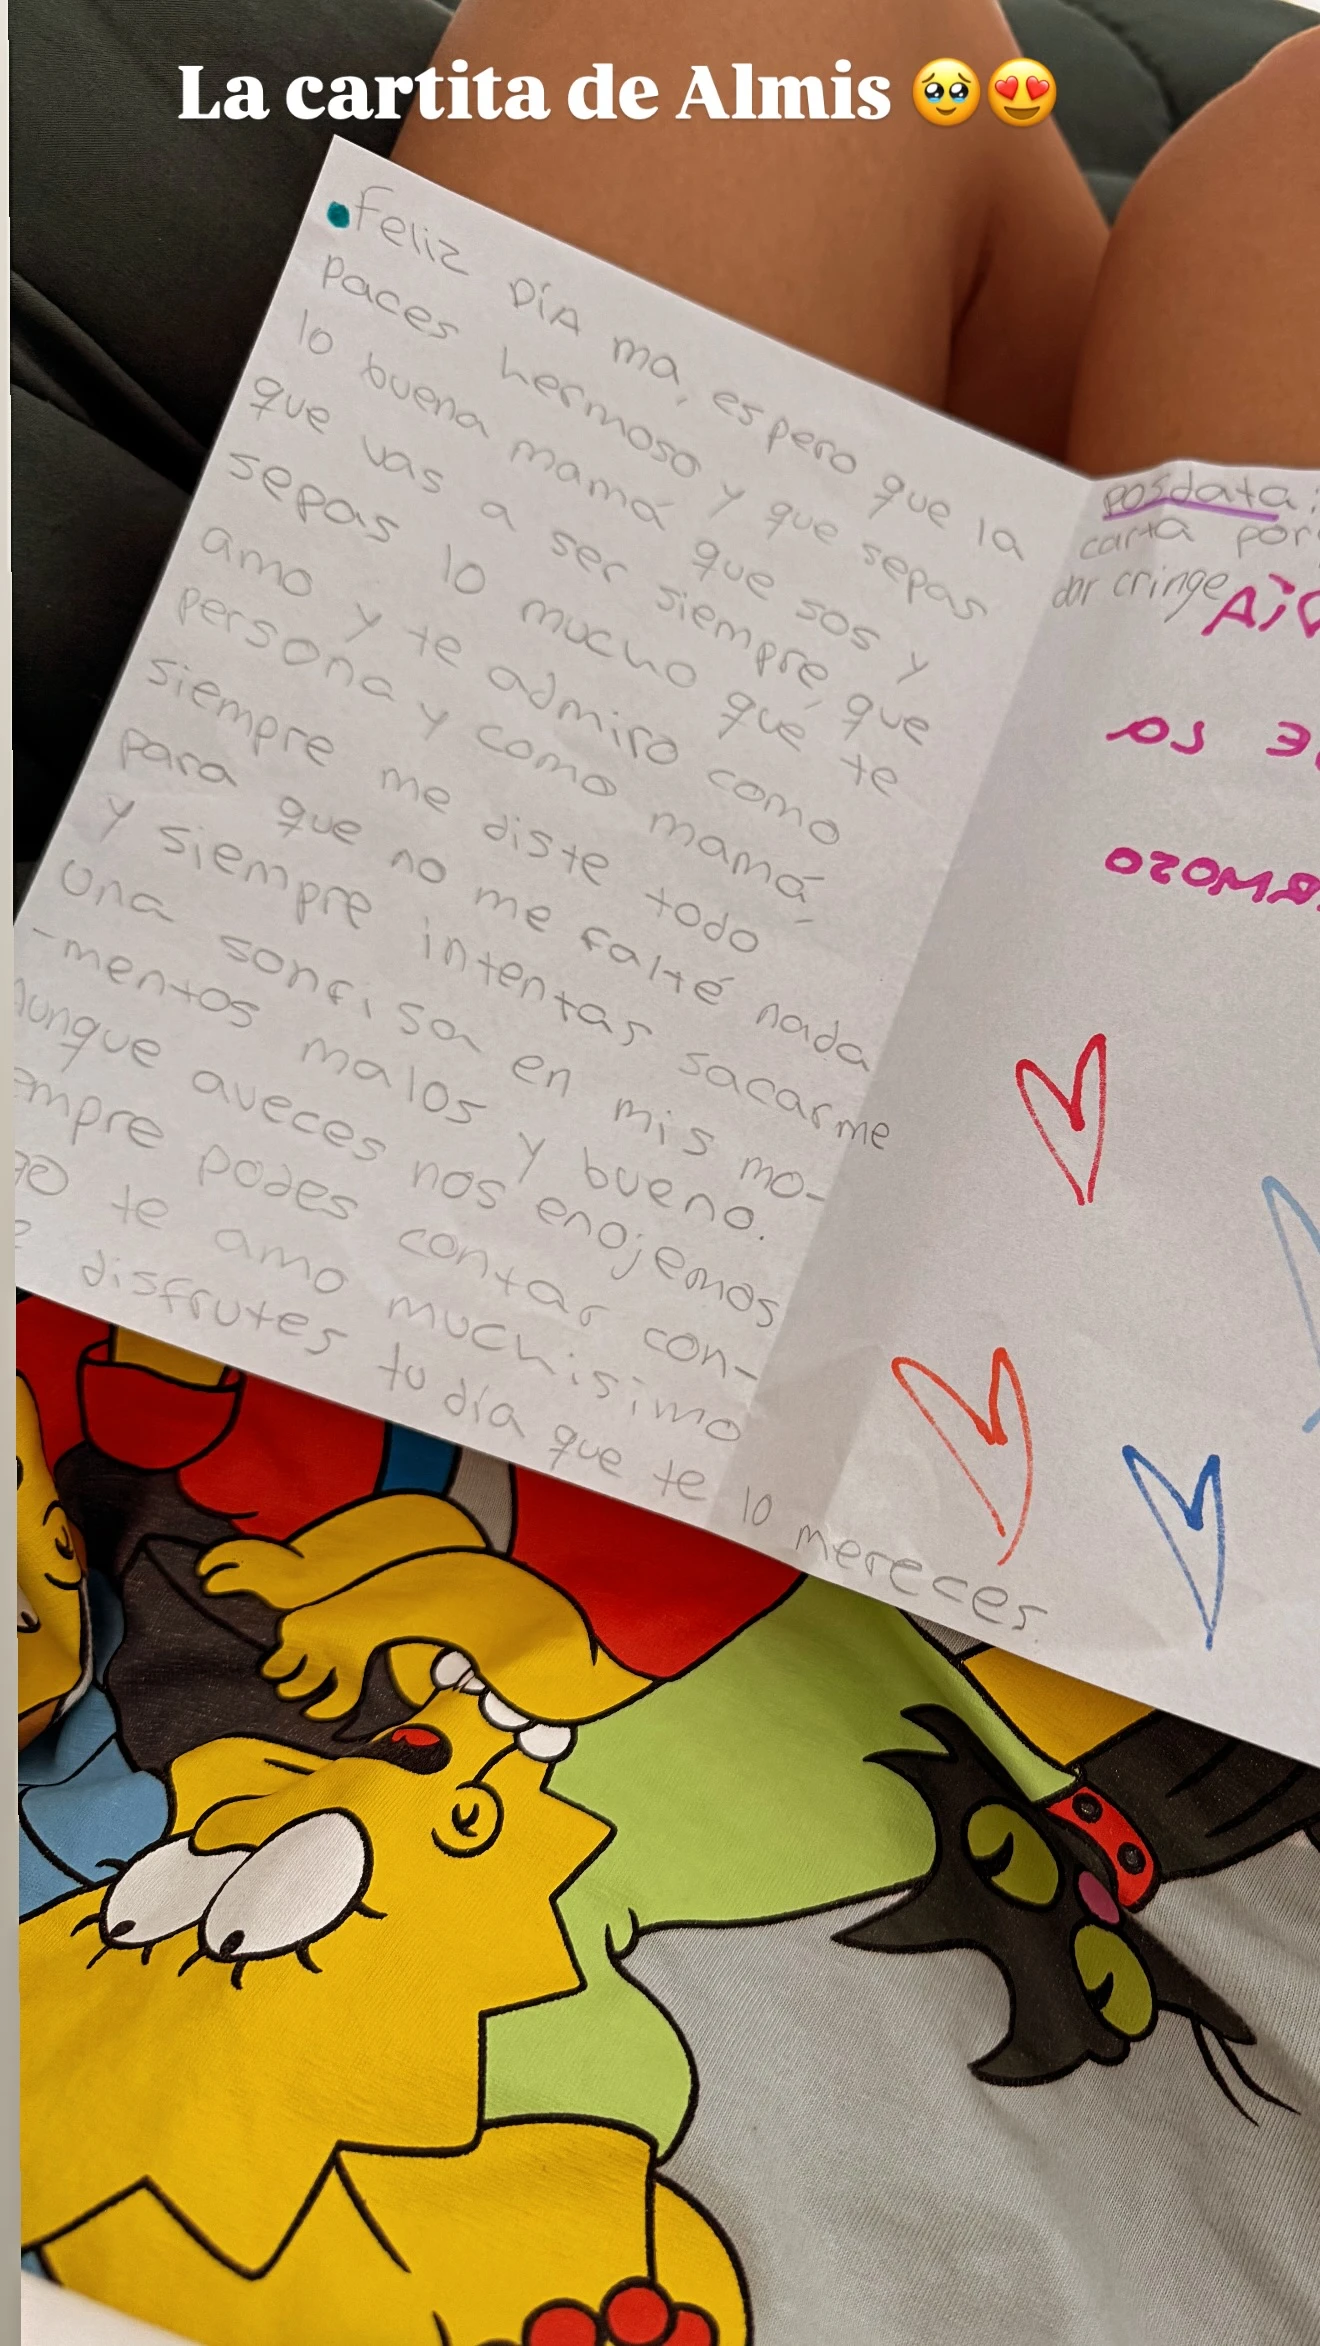 La cartita de Almis 🥹😍
• Feliz DÍA ma, espero que la
paces hermoso y que sepas
lo buena mamá que sos y
que vas a ser siempre, que
sepas lo mucho que te
amo y te admiro como
persona y como mamá,
siempre me diste todo
para que no me falté nada
y siempre intentas sacarme
una sonrisa en mis mo-
-mentos malos y bueno.
Aunque aveces nos enojemos
empre podes contar con-
go te amo muchisimo
e disfrutes tu día que te lo mereces.
posdata:
carta por
dar cringe